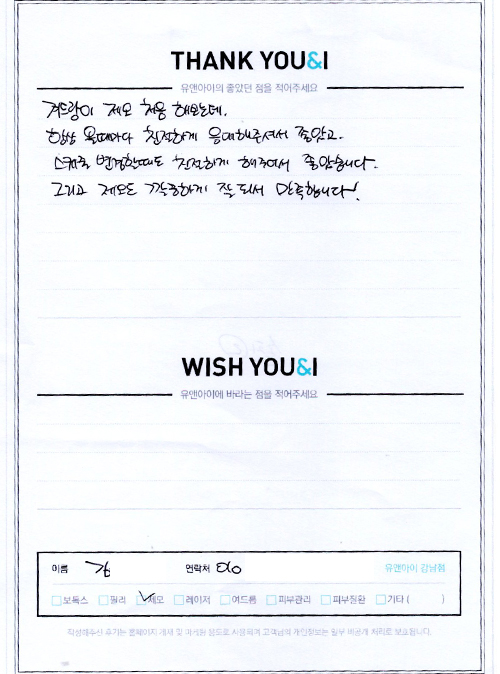 THANK YOU&I
유앤아이의 좋았던 점을 적어주세요
겨드랑이 제모 처음 해보는데.
항상 올때마다 친절하게 응대해주셔서 좋았고.
스케줄 변경할때도 친절하게 해주셔서 좋았습니다.
그리고 제모도 깔끔하게 잘 되서 만족합니다!
WISH YOU&I
유앤아이에 바라는 점을 적어주세요
이름 김 연락처 010 유앤아이 강남점
보톡스 필러 제모 레이저 여드름 피부관리 피부질환 기타 ( )
작성해주신 후기는 홈페이지 게재 및 마케팅 용도로 사용되며 고객님의 개인정보는 일부 비공개 처리로 보호됩니다.